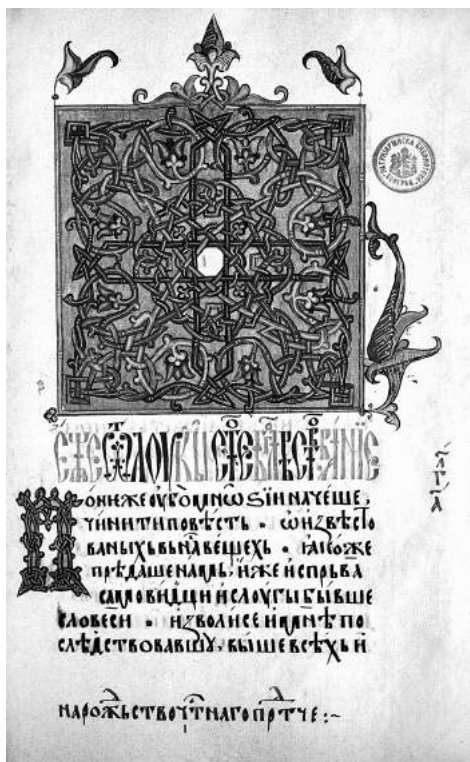 ЕЖЕ Ѿ ЛОУКЫ С҃ТОЕ БЛ҃ГОВѢСТВОВАНЇЕ
Понѥже оубѡ мнѡѕїи начеше,
чинити повѣсть • ѡ извѣсто
ванныхь вь на вещехь • ꙗкоже
прѣдаше намь, иже испрьва
самовидци и слоугы бывше
словеси • изволисе и мнѣ по
слѣдствовавшꙋ, выше всѣхь и
на рожьство чⷭ҇тнаго прⷣтче :~